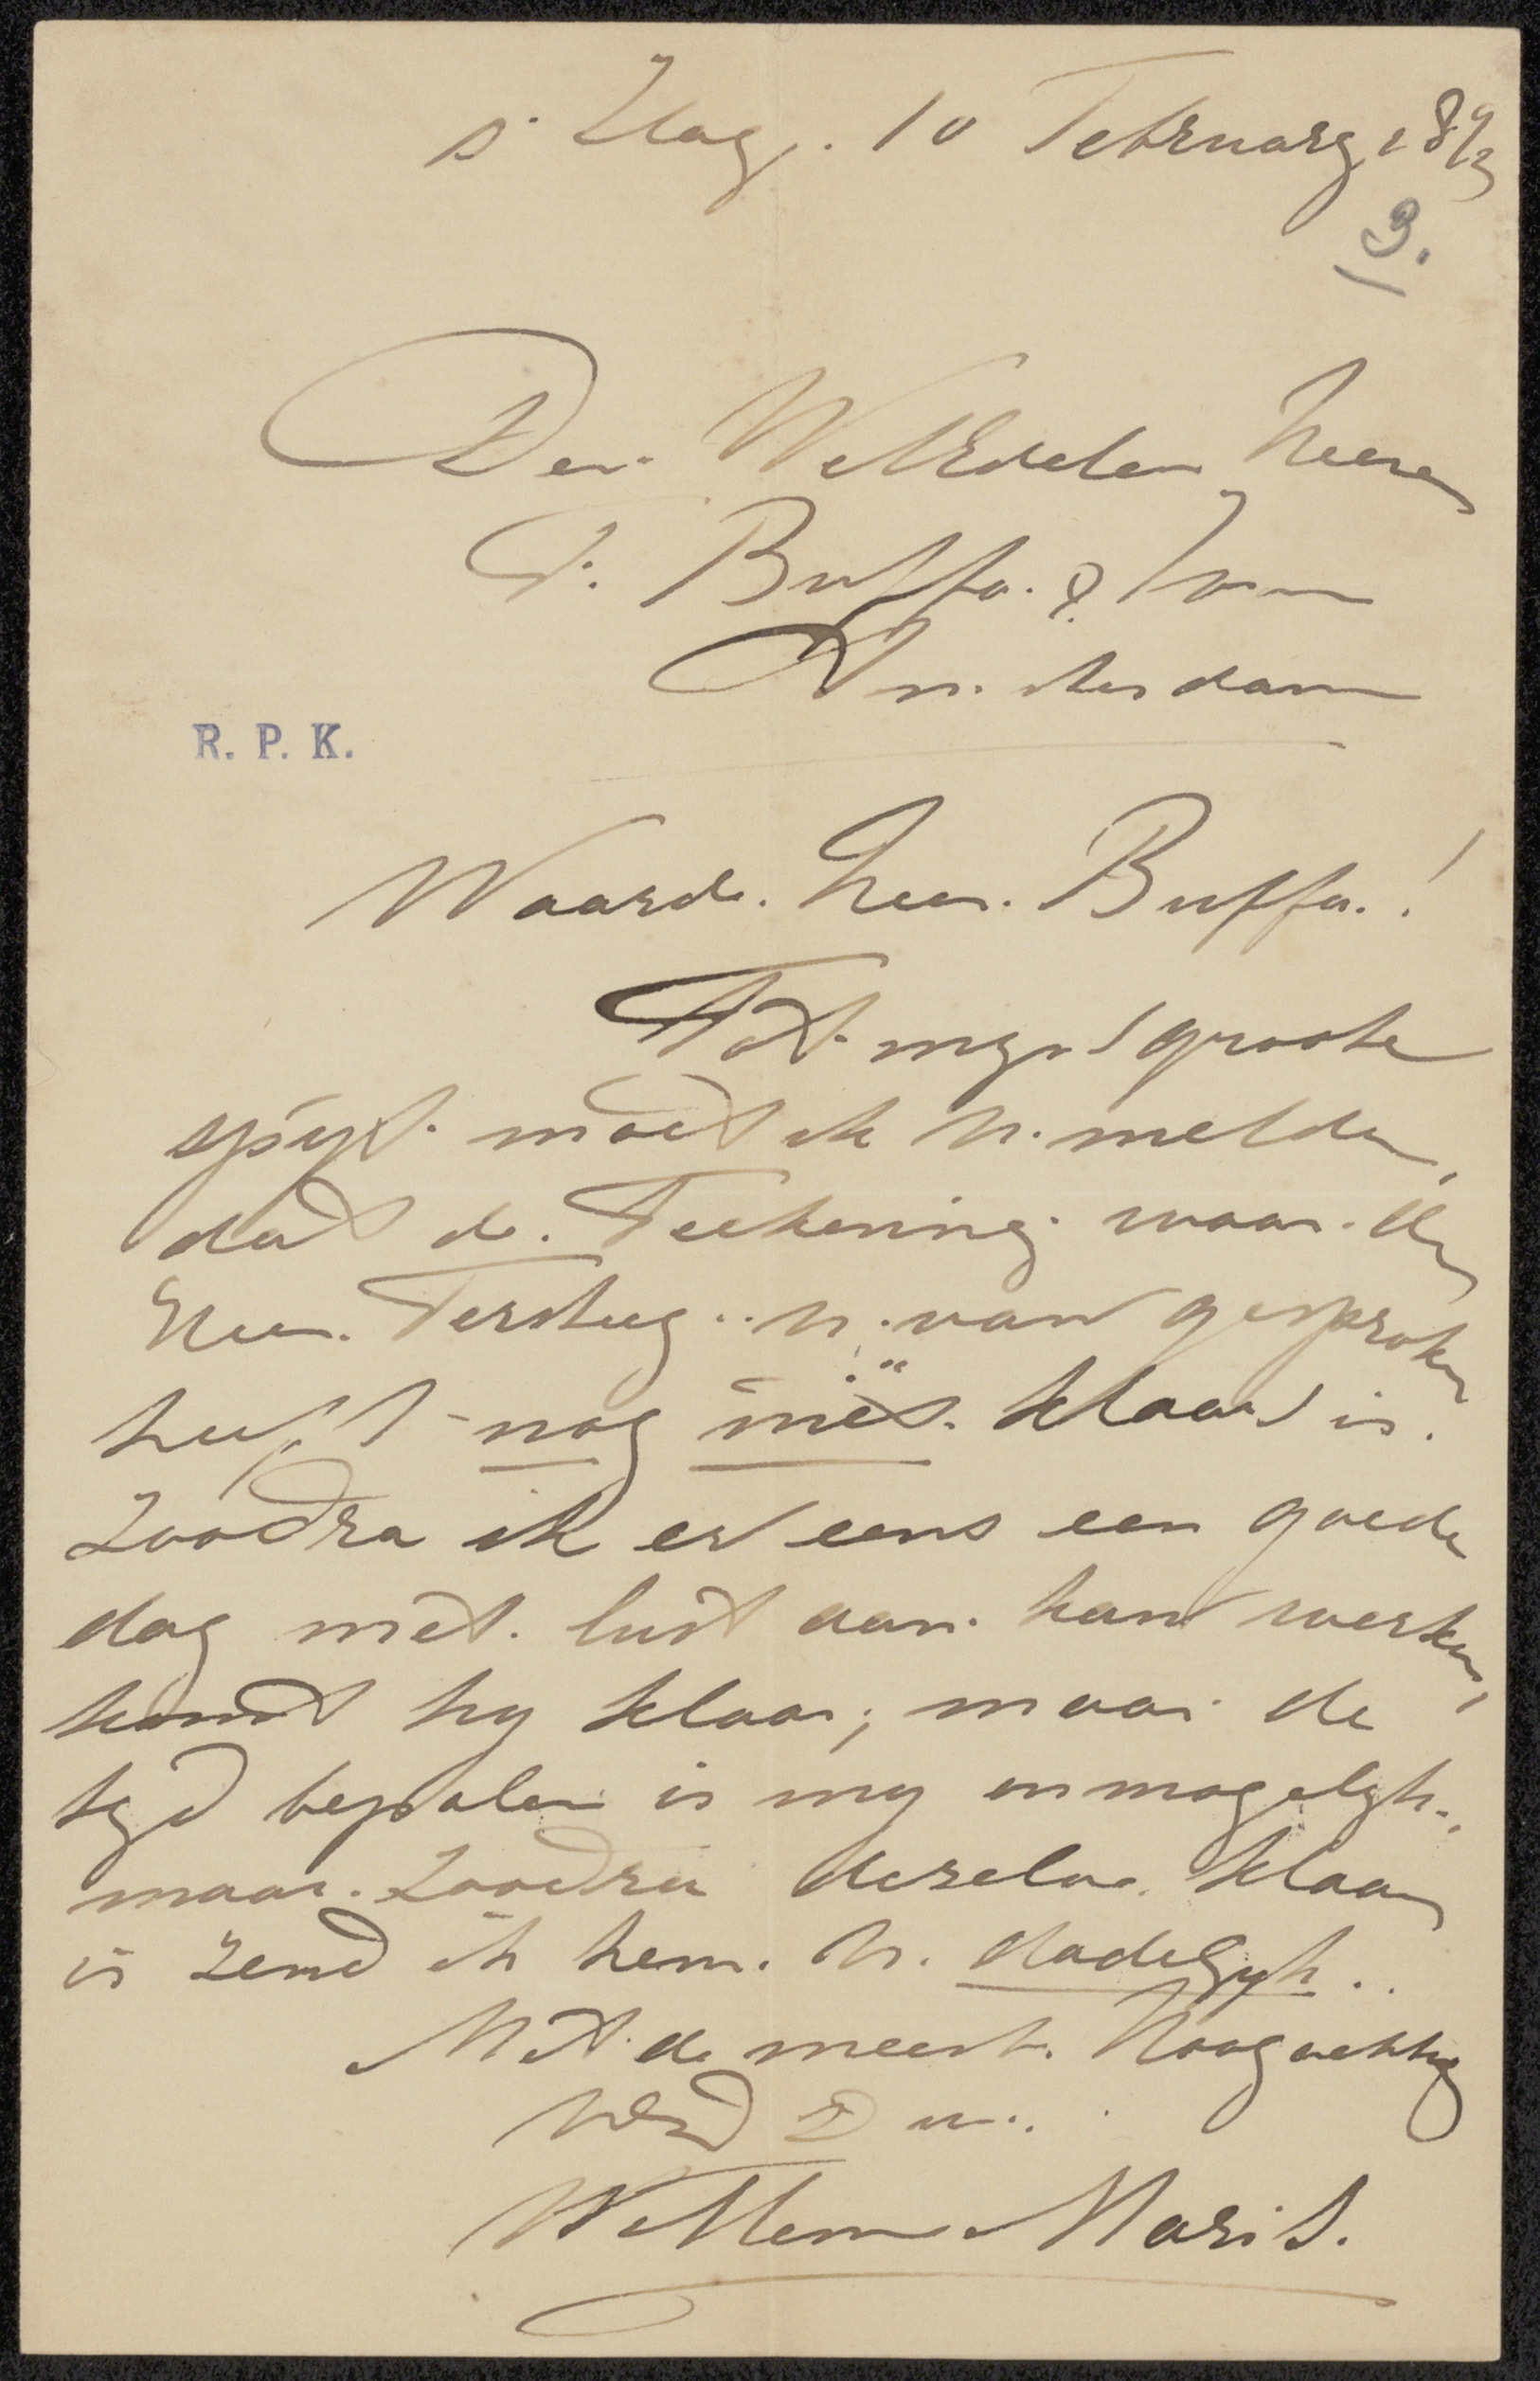 s' Hag. 10 February 1893
3.
Den WelEdelen Heeren
F. Buffa & Zonen
Amsterdam
R. P. K.
Waarde Heer Buffa!
Tot mijn groote
spijt moet ik U melden,
dat de Teekening waar de
Heer Tersteeg U van gesproken
heeft nog niet klaar is.
Zoodra ik er eens een goede
dag met lust aan kan werken,
komt hy klaar; maar de
tyd bepalen is my onmogelyk.,
maar zoodra dezelve klaar
is zend ik hem U dadelyk..
Met de meeste Hoogachting
UEd D
Willem Maris.